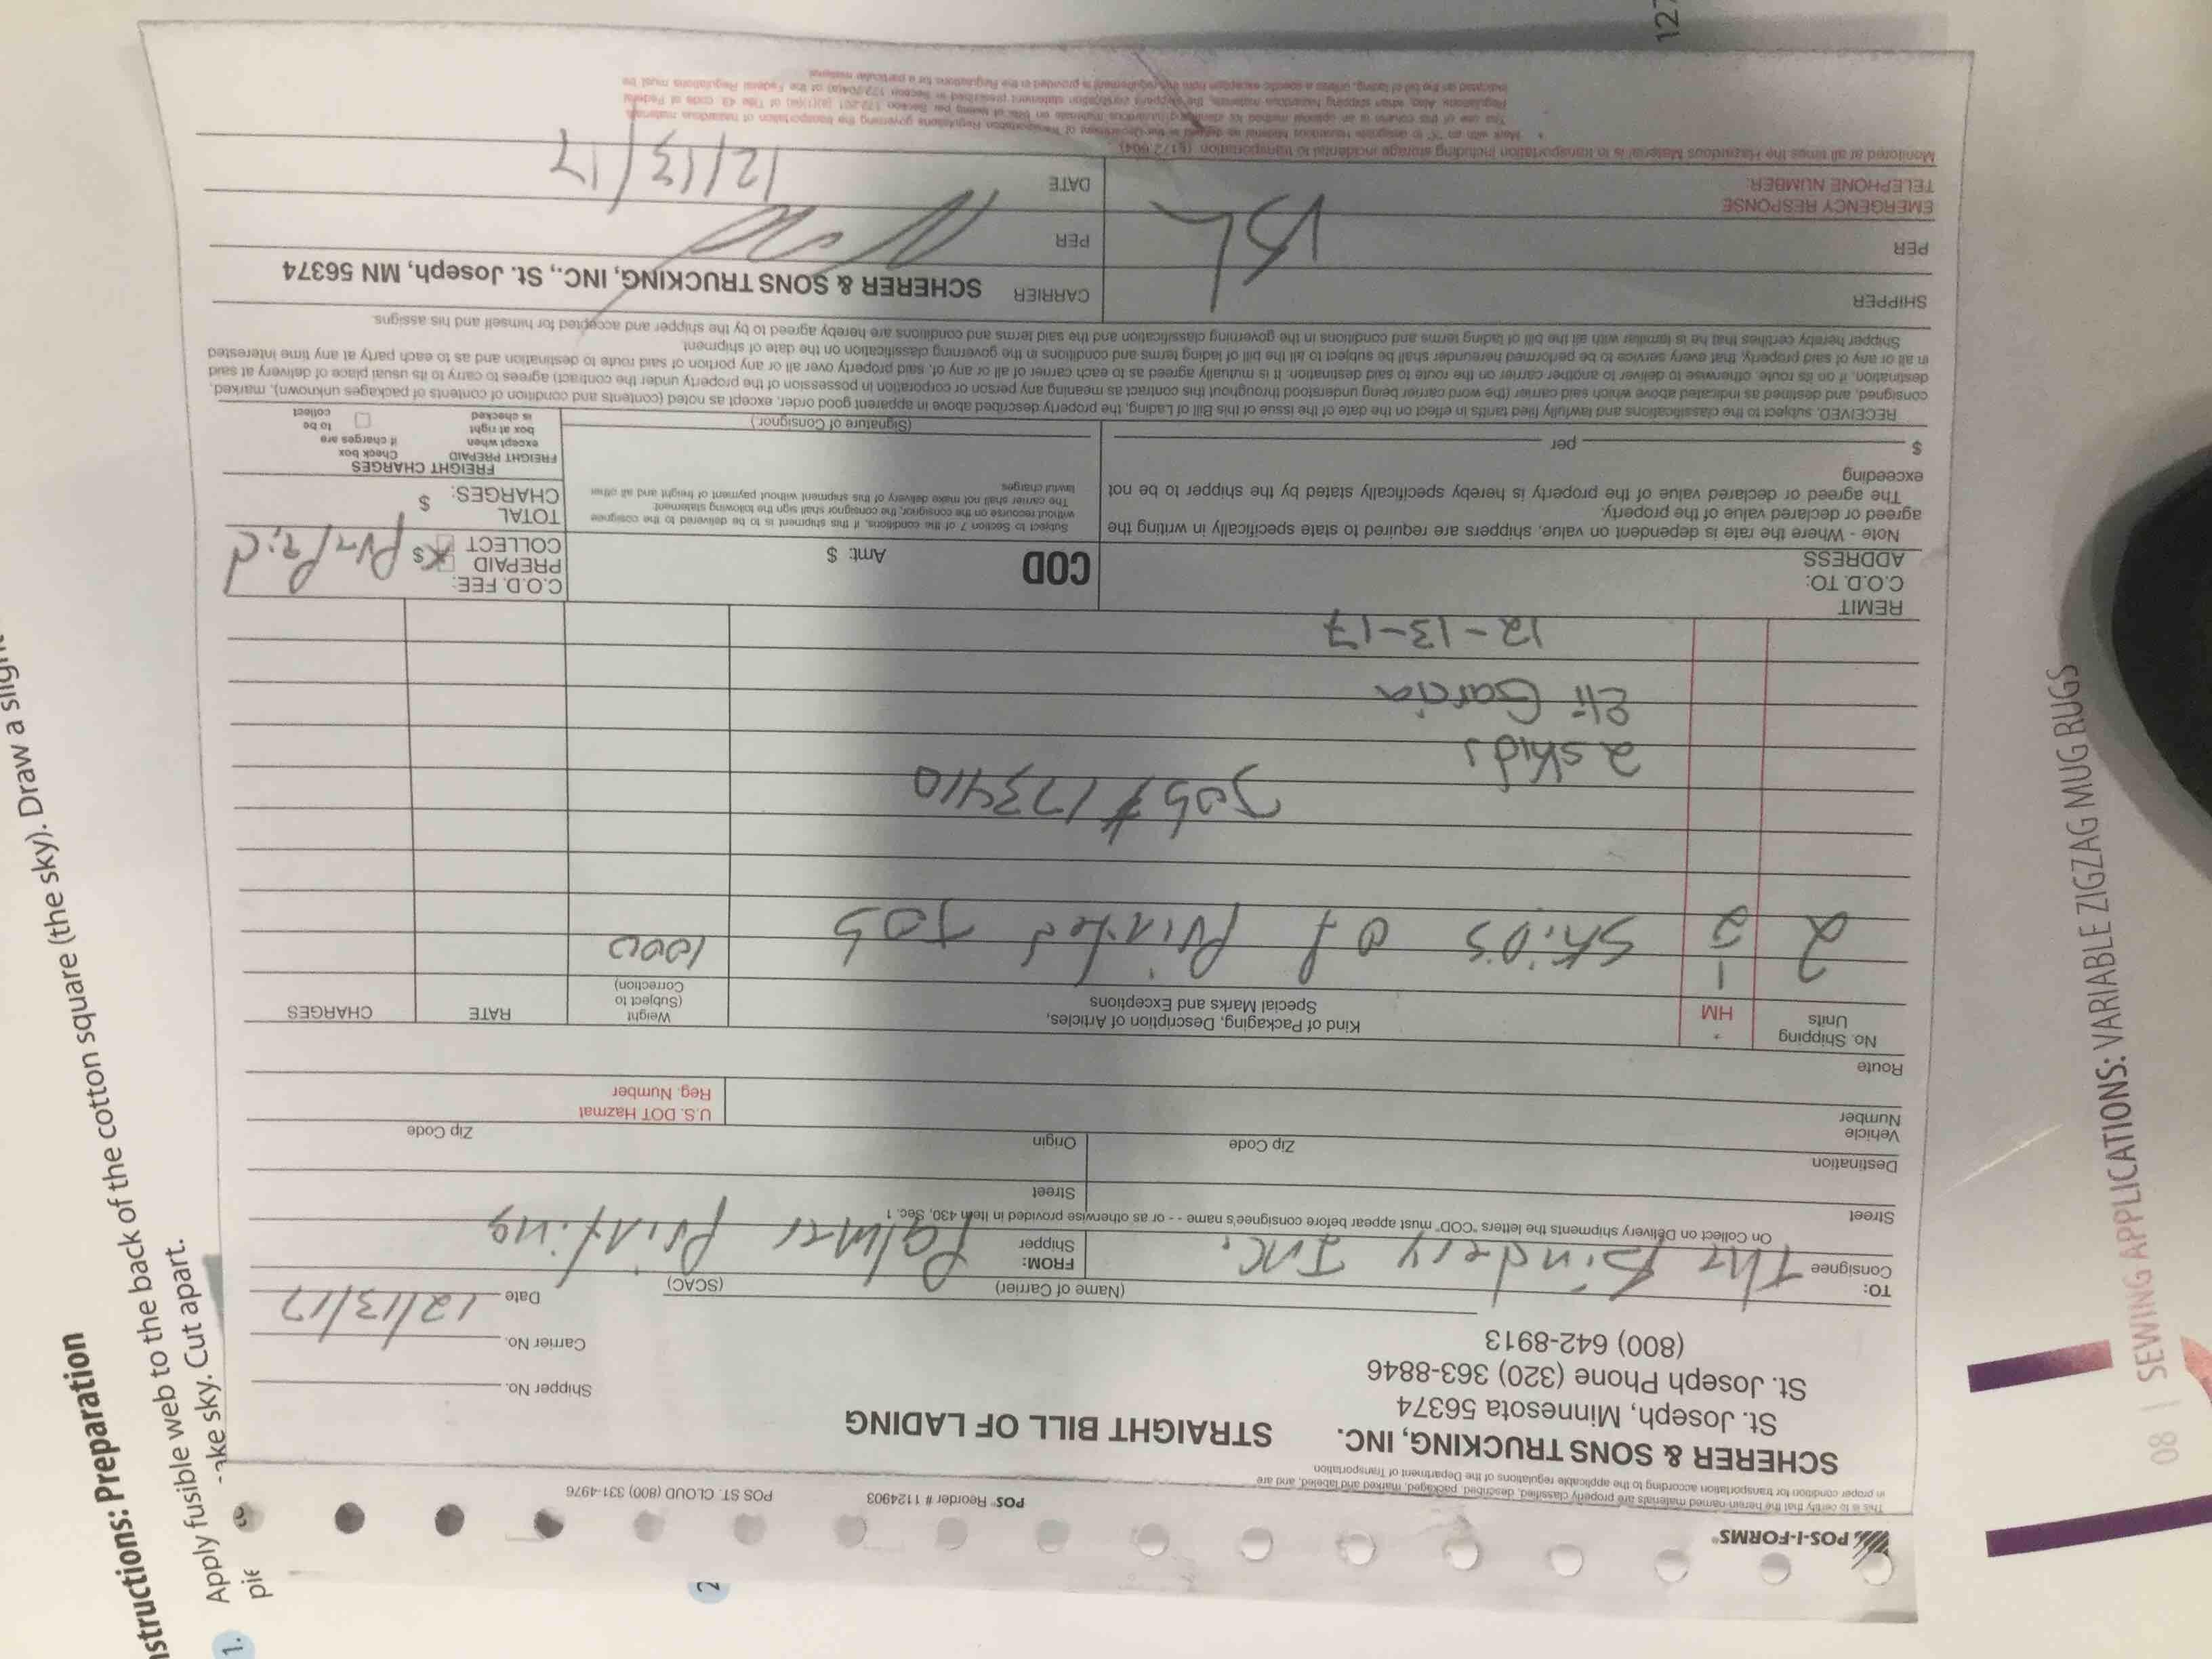 POS-I-FORMS®
This is to certify that the herein-named materials are properly classified, described, packaged, marked and labeled, and are
in proper condition for transportation according to the applicable regulations of the Department of Transportation
POS® Reorder # 1124903
POS ST. CLOUD (800) 331-4976
SCHERER & SONS TRUCKING, INC.
STRAIGHT BILL OF LADING
St. Joseph, Minnesota 56374
St. Joseph Phone (320) 363-8846
(800) 642-8913
Shipper No.
Carrier No.
Date 12/13/17
(Name of Carrier)
(SCAC)
TO:
Consignee The Bindery Inc.
FROM:
Shipper Palmer Printing
On Collect on Delivery shipments the letters "COD" must appear before consignee's name - - or as otherwise provided in Item 430, Sec. 1
Street
Street
Destination
Zip Code
Origin
Zip Code
Vehicle
Number
U.S. DOT Hazmat
Reg. Number
Route
No. Shipping
Units
*
HM
Kind of Packaging, Description of Articles,
Special Marks and Exceptions
Weight
(Subject to
Correction)
RATE
CHARGES
2 1/2 Skids of Printed Job 1000
Job# 173410
2 skids
Eli Garcia
12-13-17
REMIT
C.O.D. TO:
ADDRESS
COD
Amt: $
C.O.D. FEE:
PREPAID
COLLECT
$
TOTAL
CHARGES: $
Note - Where the rate is dependent on value, shippers are required to state specifically in writing the
agreed or declared value of the property.
The agreed or declared value of the property is hereby specifically stated by the shipper to be not
exceeding
$ per
Subject to Section 7 of the conditions, if this shipment is to be delivered to the cosignee
without recourse on the consignor, the consignor shall sign the following statement.
The carrier shall not make delivery of this shipment without payment of freight and all other
lawful charges
(Signature of Consignor)
FREIGHT CHARGES
FREIGHT PREPAID
except when
box at right
is checked
Check box
if charges are
to be
collect
RECEIVED, subject to the classifications and lawfully filed tariffs in effect on the date of the issue of this Bill of Lading, the property described above in apparent good order, except as noted (contents and condition of contents of packages unknown), marked,
consigned, and destined as indicated above which said carrier (the word carrier being understood throughout this contract as meaning any person or corporation in possession of the property under the contract) agrees to carry to its usual place of delivery at said
destination, if on its route, otherwise to deliver to another carrier on the route to said destination. It is mutually agreed as to each carrier of all or any of, said property over all or any portion of said route to destination and as to each party at any time interested
in all or any of said property, that every service to be performed hereunder shall be subject to all the bill of lading terms and conditions in the governing classification on the date of shipment.
Shipper hereby certifies that he is familiar with all the bill of lading terms and conditions in the governing classification and the said terms and conditions are hereby agreed to by the shipper and accepted for himself and his assigns.
SHIPPER
CARRIER SCHERER & SONS TRUCKING, INC., St. Joseph, MN 56374
PER
PER
EMERGENCY RESPONSE
TELEPHONE NUMBER:
DATE 12/13/17
Monitored at all times the Hazardous Material is in transportation including storage incidental to transportation (§172.604)
nstructions: Preparation
1. Apply fusible web to the back of the cotton square (the sky). Draw a
sky. Cut apart.
2
08 | SEWING APPLICATIONS: VARIABLE ZIGZAG MUG RUGS